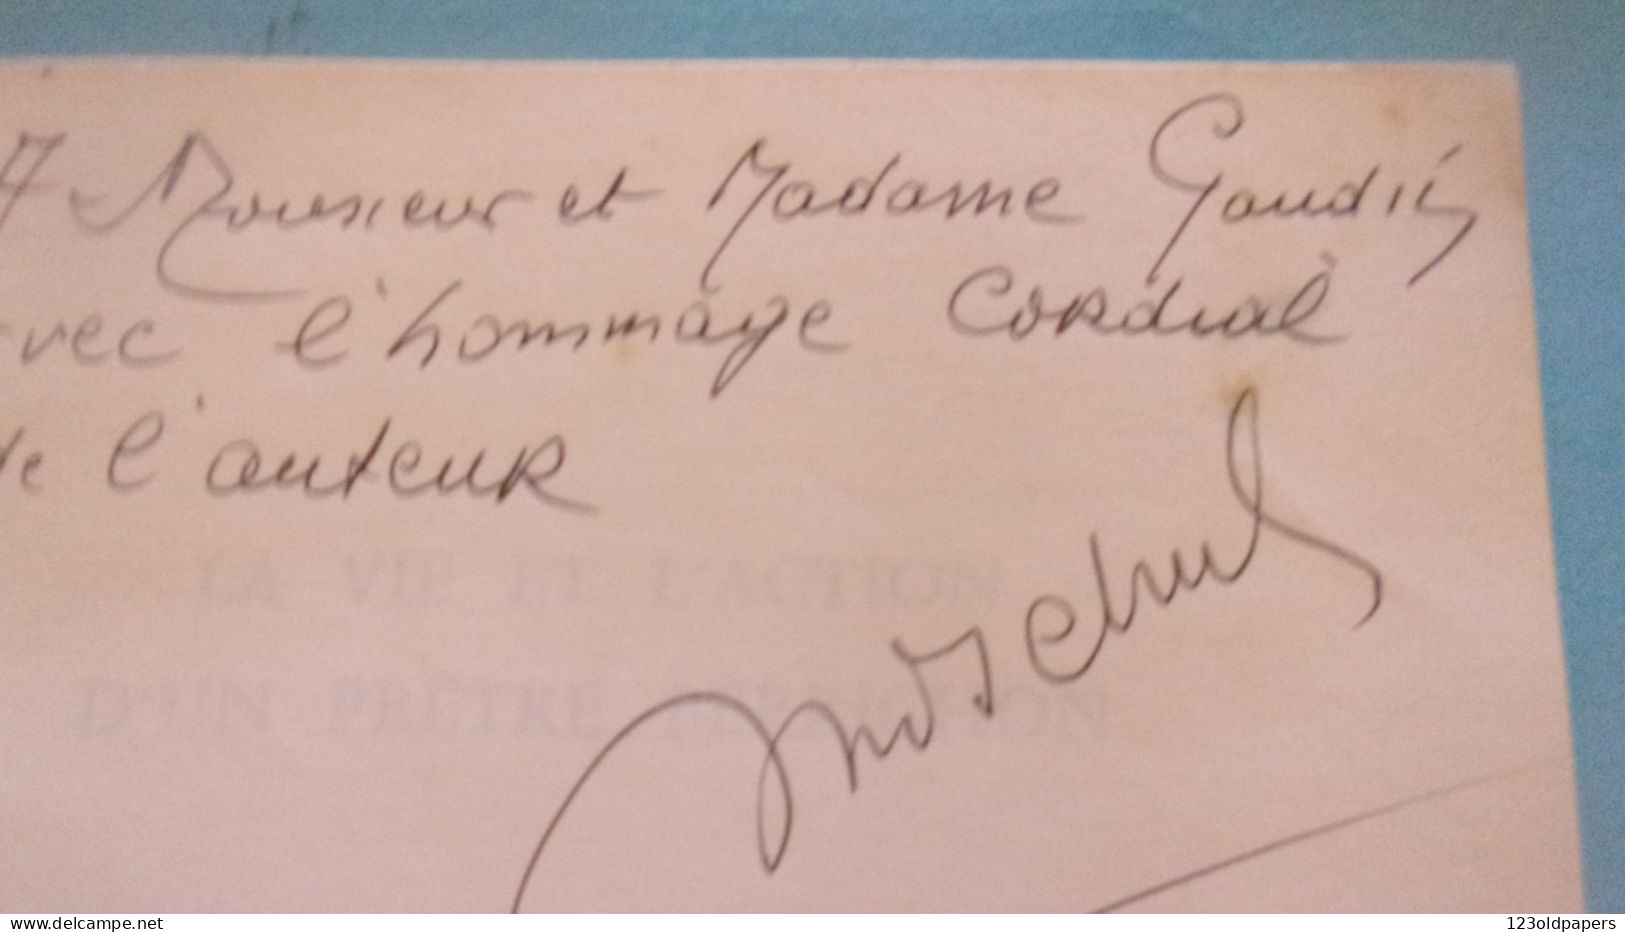 A Monsieur et Madame
avec l'hommage cordial
de l'auteur
LA VIE ET L'ACTION
D'UN PRÊTRE
delcampe.net
123oldpapers